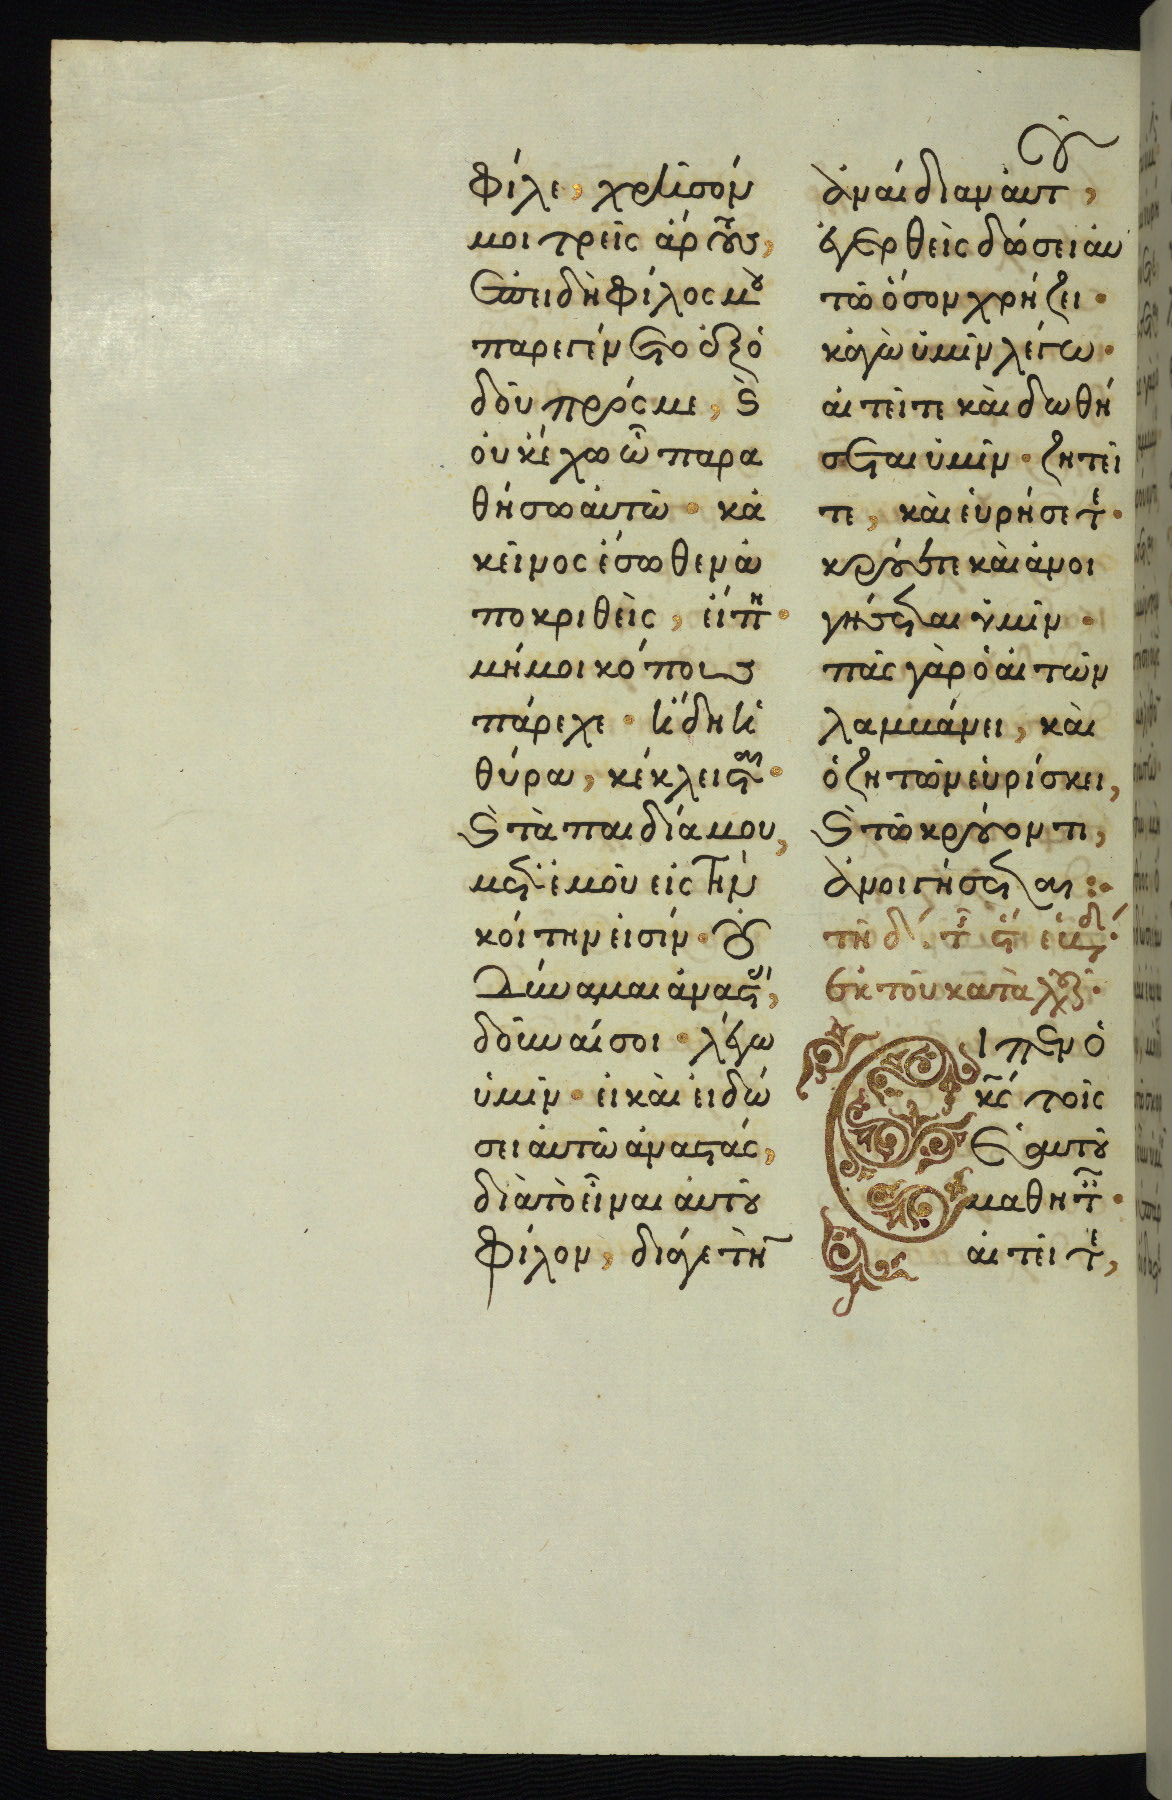 φίλε, χρῆσόν
μοι τρεῖς ἄρτους,
ἐπειδὴ φίλος μου
παρεγένετο ἐξ ὁ
δοῦ πρός με, καὶ
οὐκ ἔχω ὃ παρα
θήσω αὐτῷ· κἀ
κεῖνος ἔσωθεν ἀ
ποκριθεὶς, εἴπῃ·
μή μοι κόπους
πάρεχε· ἤδη ἡ
θύρα, κέκλεισται·
καὶ τὰ παιδία μου,
μετ' ἐμοῦ εἰς τὴν
κοίτην εἰσίν· οὐ
δύναμαι ἀναστὰς,
δοῦναί σοι· λέγω
ὑμῖν· εἰ καὶ εἰ δώ
σει αὐτῷ ἀναστάς,
διὰ τὸ εἶναι αὐτοῦ
φίλον, διά γε τὴν
ἀναίδιαν αὐτοῦ,
ἐγερθεὶς δώσει αὐ
τῷ ὅσον χρήζει·
κἀγὼ ὑμῖν λέγω·
αἰτεῖτε καὶ δωθή
σεται ὑμῖν· ζητεῖ
τε, καὶ εὑρήσετε·
κρούετε καὶ ἀνοι
γήσεται ὑμῖν·
πᾶς γὰρ ὁ αἰτῶν
λαμβάνει, καὶ
ὁ ζητῶν εὑρίσκει,
καὶ τῷ κρούοντι,
ἀνοιγήσεται :·
τῇ δ΄. τῆς ϛ΄ ἑβδ·
ἐκ τοῦ κατὰ λουκ·
Εἶπεν ὁ
κς τοῖς
ἑαυτοῦ
μαθητ·
αἰτεῖτε,